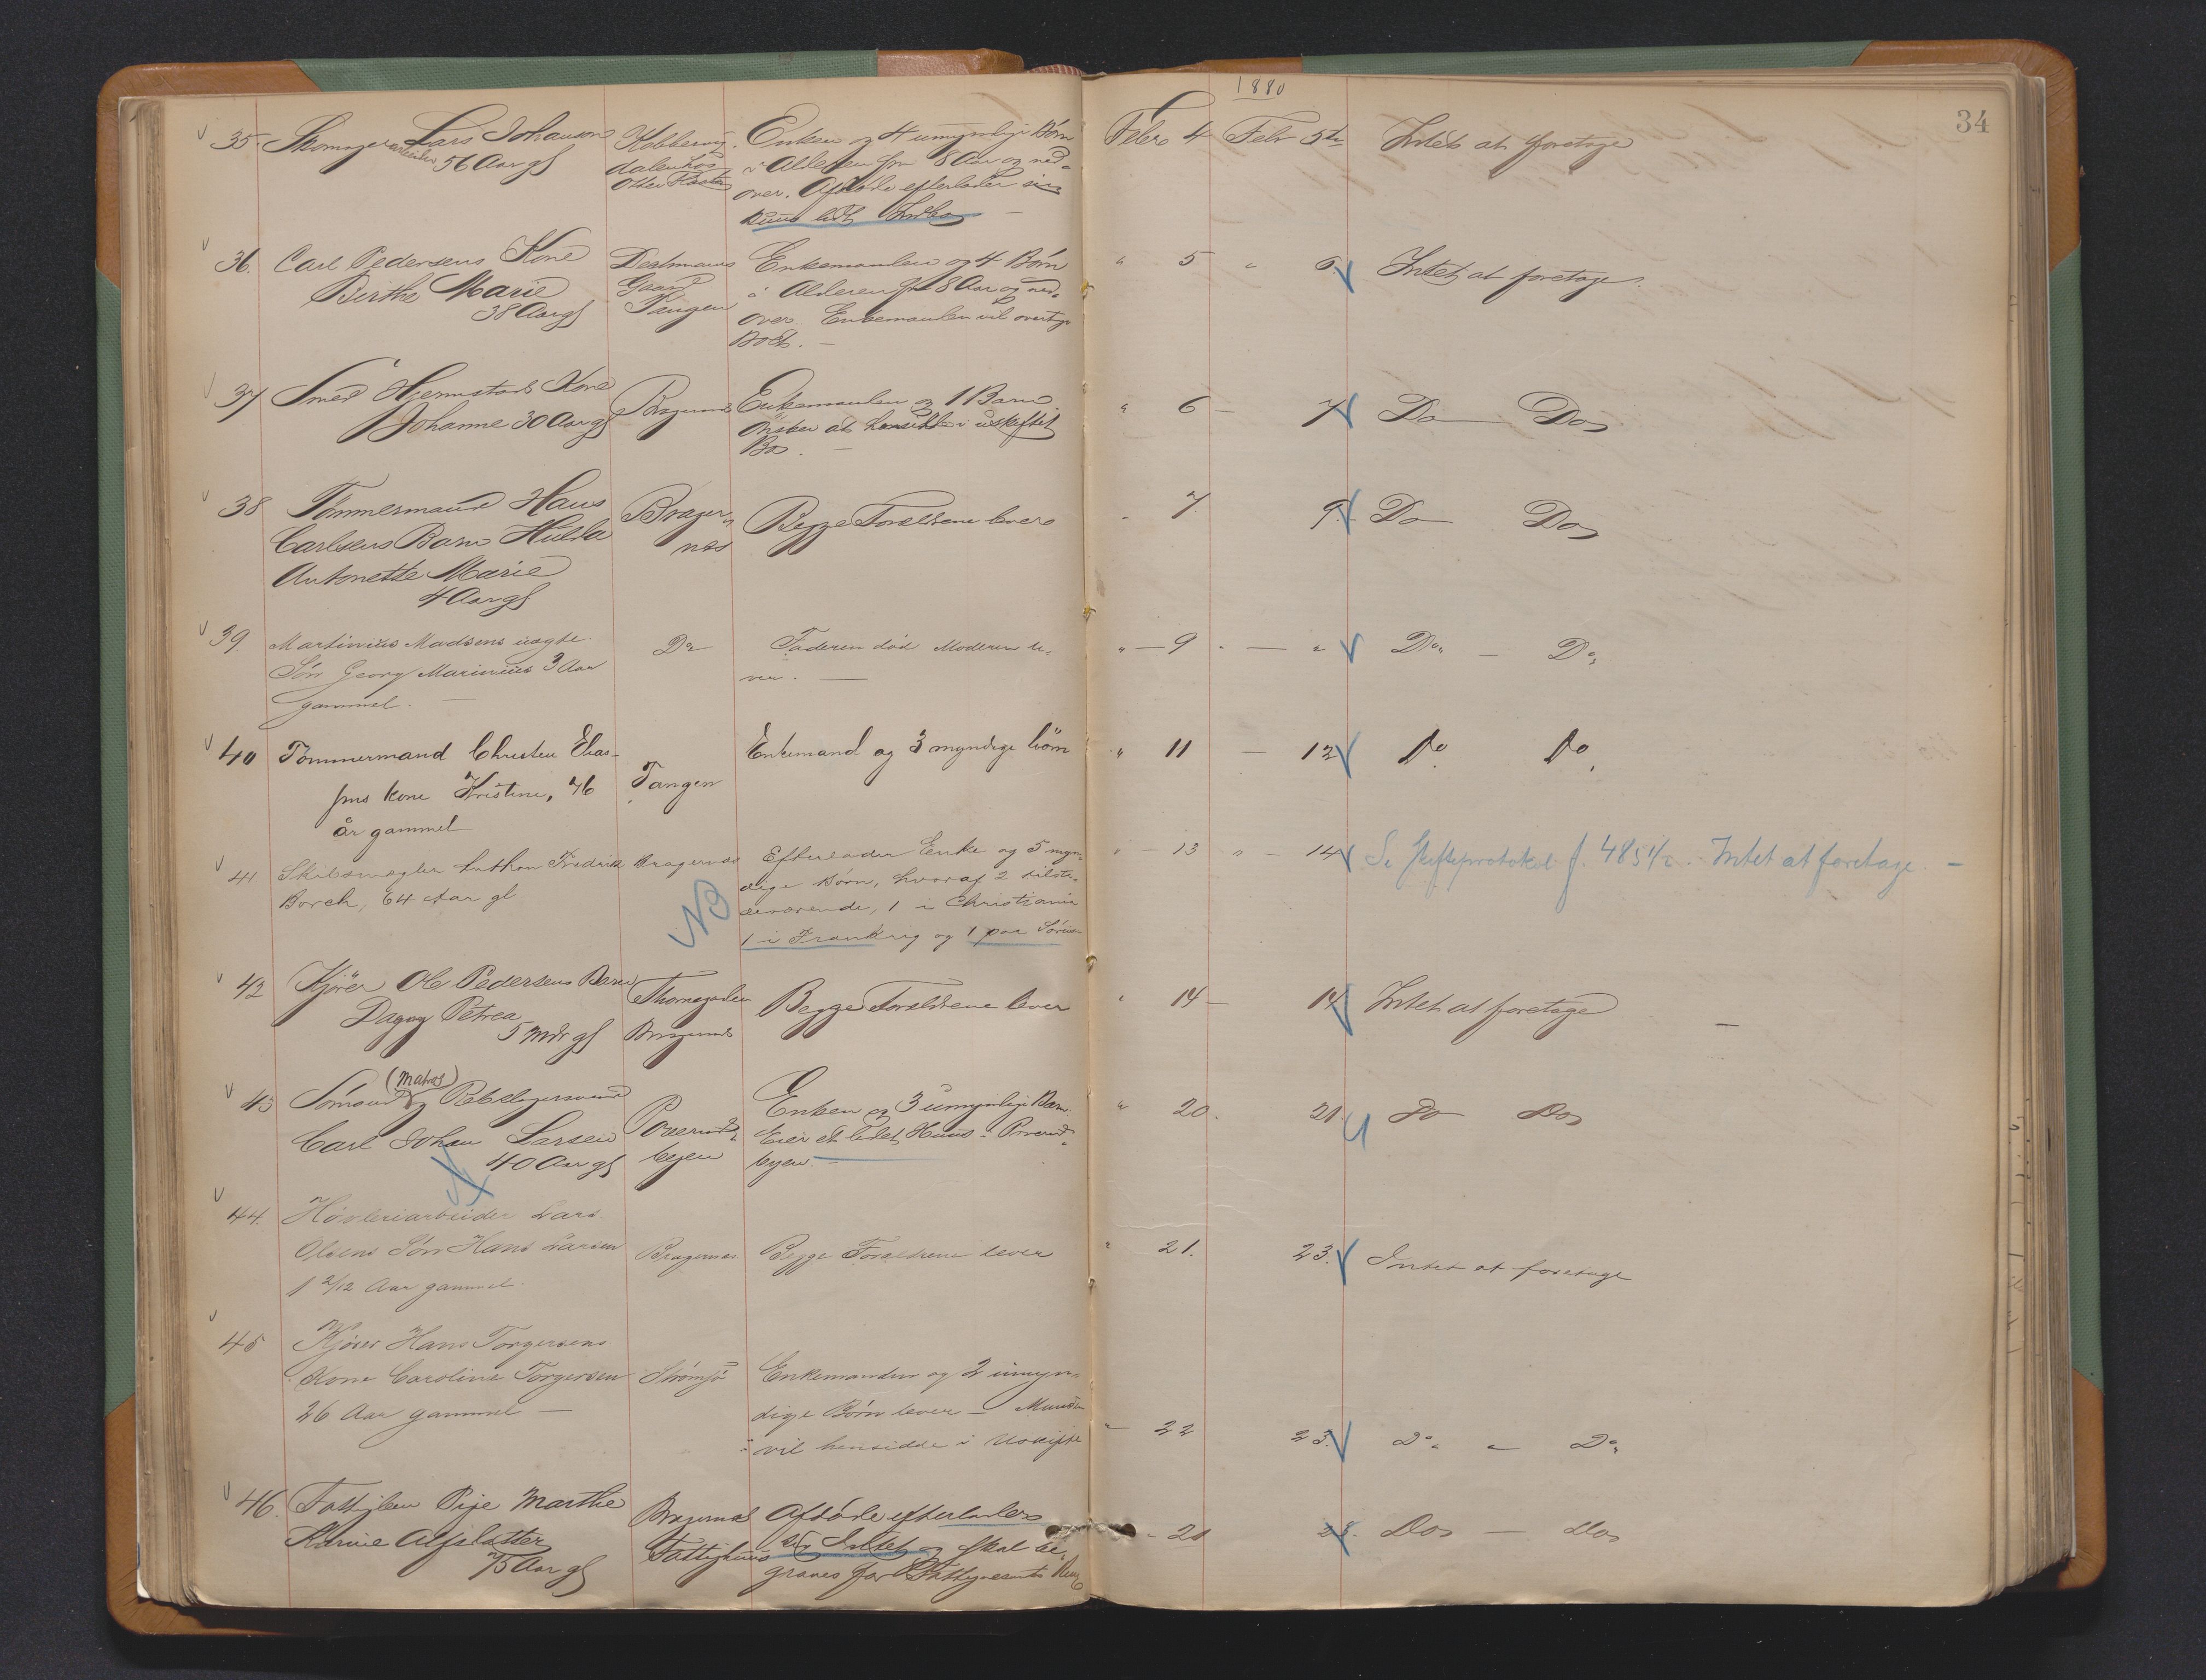 1880
34
35. Skomager Lars Johansen Kobbervig Enken og 4 umyndige Børn Febr 4 Febr 5te Intet at foretage
arbeider 56 Aar gl dalen hos i Alderen fra 8 Aar og ned-
Otter over. Afdøde efterlader sig
kuns lidt Indbo
36. Carl Pedersens Kone Enkemanden og 4 Børn " 5 " 6 Intet at foretage.
Berthe Marie Gaard i Alderen fra 8 Aar og ned-
38 Aar gl Tangen over. Enkemanden vil overtage
Boet. —
37 Smed Hjermstads Kone Bragernes Enkemanden og 1 Barn " 6 — 7 Do Do
Johanne 30 Aar gl Ønsker at hensidde i uskiftet
Bo. —
38 Tømmermand Hans Brager- Begge Forældrene lever " 7. 9. Do Do
Carlsens Barn Hulda nes
Antonette Marie
4 Aar gl
39 Martinius Madsens uægte Do Faderen död Moderen le- " — 9 " — " Do — Do
Sön Georg Marinius 3 Aar ver. —
gammel. —
40 Tömmermand Christen Elias- Enkemand og 3 myndige börn " 11 — 12 Do Do
sens kone Kristine, 76 Tangen
år gammel
41. Skibsmægler Anthon Fredrik Bragernæs Efterlader Enke og 5 myn- " — 13 " 14 Se Skifteprotokol f. 485 1/2. Intet at foretage. —
Borch, 64 Aar gl dige Börn, hvoraf 2 tilste-
NB deværende, 1 i Christiania
1 i Frankrig og 1 paa
42 Kjörer Ole Pedersens Barn Thornegaden Begge Forældrene lever " 14 — 14 Intet at foretage —
Dagny Petrea Bragernes
5 Mdr gl
(Matros)
43 Sömand og Rebslagersvend Enken og 3 umyndige Børn. " 20. 21. Do Do
Carl Johan Larsen Poverud- Eier et lidet Huus i Poverud-
40 Aar gl byen byen.
44. Høvleriarbeider Lars
Olsens Sön Hans Larsen Bragernes Begge Forældrene lever " 21. 23. Intet at foretage
1 2/12 Aar gammel.
45 Kjörer Hans Torgersens
Kone Caroline Torgersen Strömsö Enkemanden og 2 umyn-
26 Aar gammel — dige Börn lever — Manden " 22 23. Do — Do
vil hensidde i Uskifte
46. Fattiglem Pige Marthe Bragernes Afdöde efterlader " 21 Do — Do
Karine Alfsdatter Fattighuus sig Intet og skal be-
75 Aar gl graves for Fattigvæsnets Regn